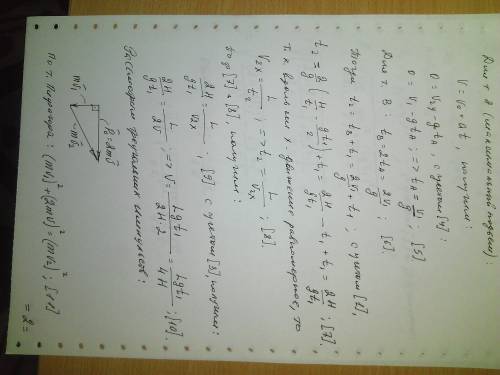 Для т. В (максимальный подъем):
V = V₀ + at, получим:
0 = V₂y - gtв с учетом [4]:
0 = V₁ - gtв; => tв = V₁/g; [5]
Для т. В: tв = 2tв = 2V₁/g; [6].
Тогда t₂ = tв + t₁ = 2V₁/g + t₁; с учетом [2],
t₂ = 2/g (H/t₁ - gt₁/2) + t₁ = 2H/gt₁ - t₁ + t₁ = 2H/gt₁; [7].
Т.к. вдоль оси х движение равномерное, то
V₂x = L/t₂; => t₂ = L/V₂x; [8].
тогда [7] и [8], получим:
2H/gt₁ = L/V₂x; [9] с учетом [3] получим:
2H/gt₁ = L/2V; => V = Lgt₁/2H·2 = Lgt₁/4H; [10].
Рассмотрим треугольник импульсов:
mV₁
P₀ = 2mV
mV₂
По т. Пифагора: (mV₁)² + (2mV)² = (mV₂)²; [11]
= 2 =